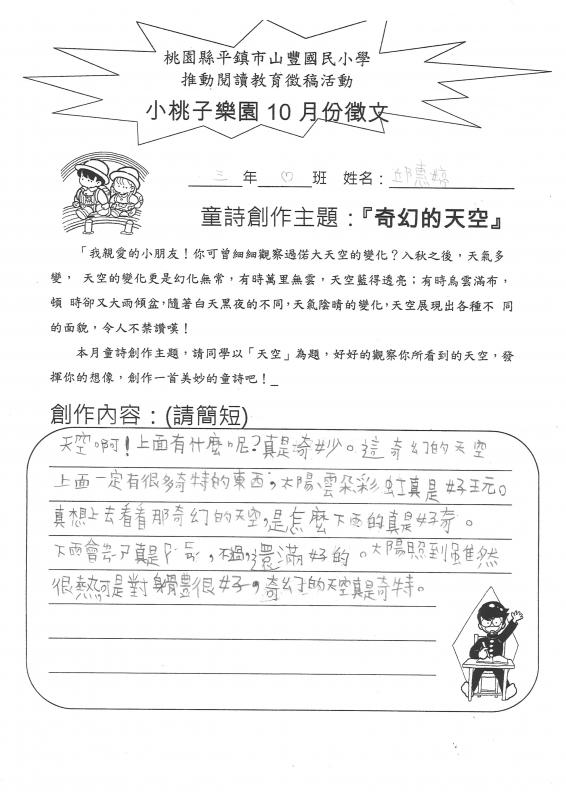 桃園縣平鎮市山豐國民小學
推動閱讀教育徵稿活動
小桃子樂園 10 月份徵文
三 年 班 姓名：邱惠婷
童詩創作主題：『奇幻的天空』
「我親愛的小朋友！你可曾細細觀察過偌大天空的變化？入秋之後，天氣多
變， 天空的變化更是幻化無常，有時萬里無雲，天空藍得透亮；有時烏雲滿布，
頓 時卻又大雨傾盆，隨著白天黑夜的不同，天氣陰晴的變化，天空展現出各種不 同
的面貌，令人不禁讚嘆！
本月童詩創作主題，請同學以「天空」為題，好好的觀察你所看到的天空，發
揮你的想像，創作一首美妙的童詩吧！_
創作內容：(請簡短)
天空啊！上面有什麼呢？真是奇妙。這奇幻的天空
上面一定有很多奇特的東西，太陽、雲朵彩虹真是好玩。
真想上去看看那奇幻的天空，是怎麼下雨的真是好奇。
下雨會 真是 ，不過，還滿好的。太陽照到雖然
很熱可是對身體很好，奇幻的天空真是奇特。